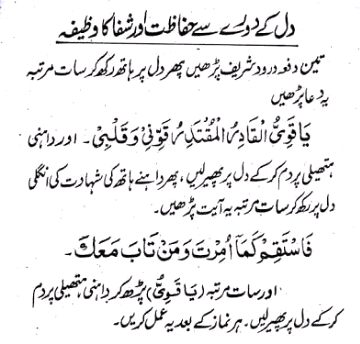 دل کے دورے سے حفاظت اور شفا کا وظیفہ
تین دفعہ درود شریف پڑھیں پھر دل پر ہاتھ رکھ کر سات مرتبہ
یہ دعا پڑھیں
یَا قَوِیُّ الْقَادِرُ الْمُقْتَدِرُ قَوِّنِیْ وَقَلْبِیْ۔ اور داہنی
ہتھیلی پر دم کر کے دل پر پھیر لیں، پھر داہنے ہاتھ کی شہادت کی انگلی
دل پر رکھ کر سات مرتبہ یہ آیت پڑھیں۔
فَاسْتَقِمْ كَمَآ اُمِرْتَ وَمَنْ تَابَ مَعَكَ۔
اور سات مرتبہ (یَا قَوِیُّ) پڑھ کر داہنی ہتھیلی پر دم
کر کے دل پر پھیر لیں۔ ہر نماز کے بعد یہ عمل کریں۔